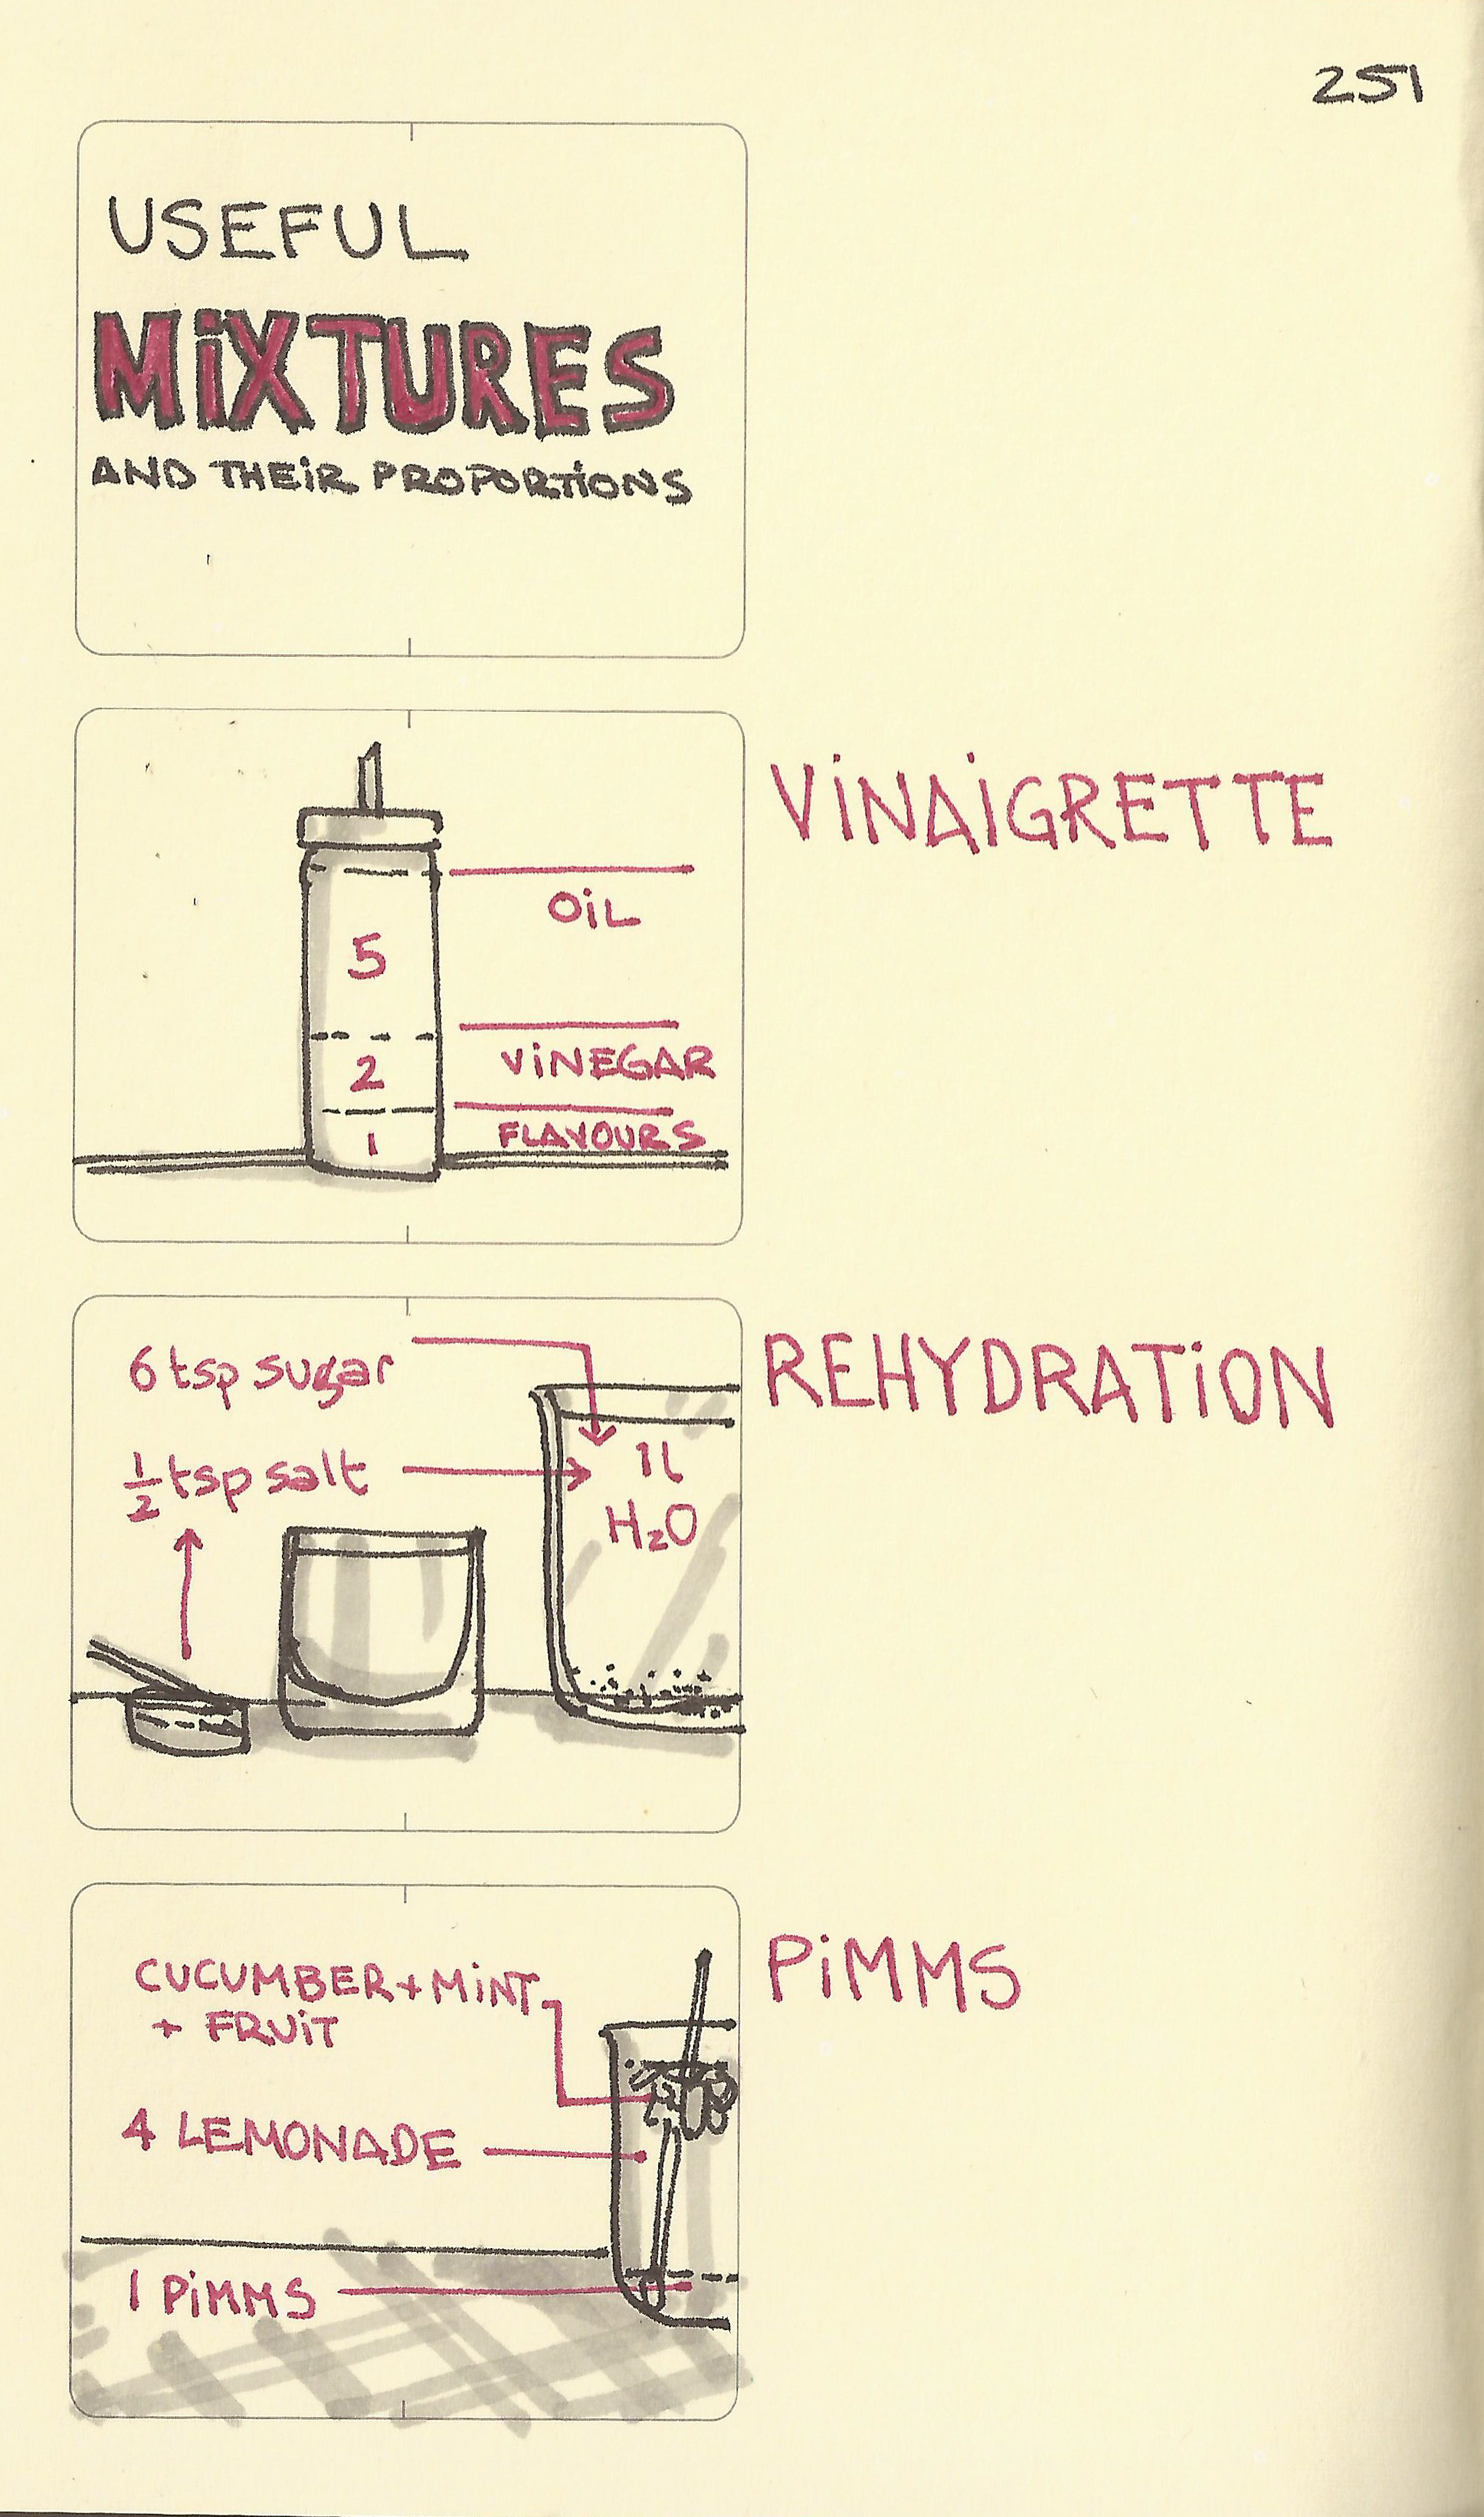 251
USEFUL
MiXTURES
AND THEiR PROPORTiONS
ViNAiGRETTE
OiL
5
ViNEGAR
2
FLAVOURS
1
REHYDRATiON
6 tsp sugar
½ tsp salt
1l
H₂O
PiMMS
CUCUMBER + MiNT
+ FRUiT
4 LEMONADE
1 PiMMS